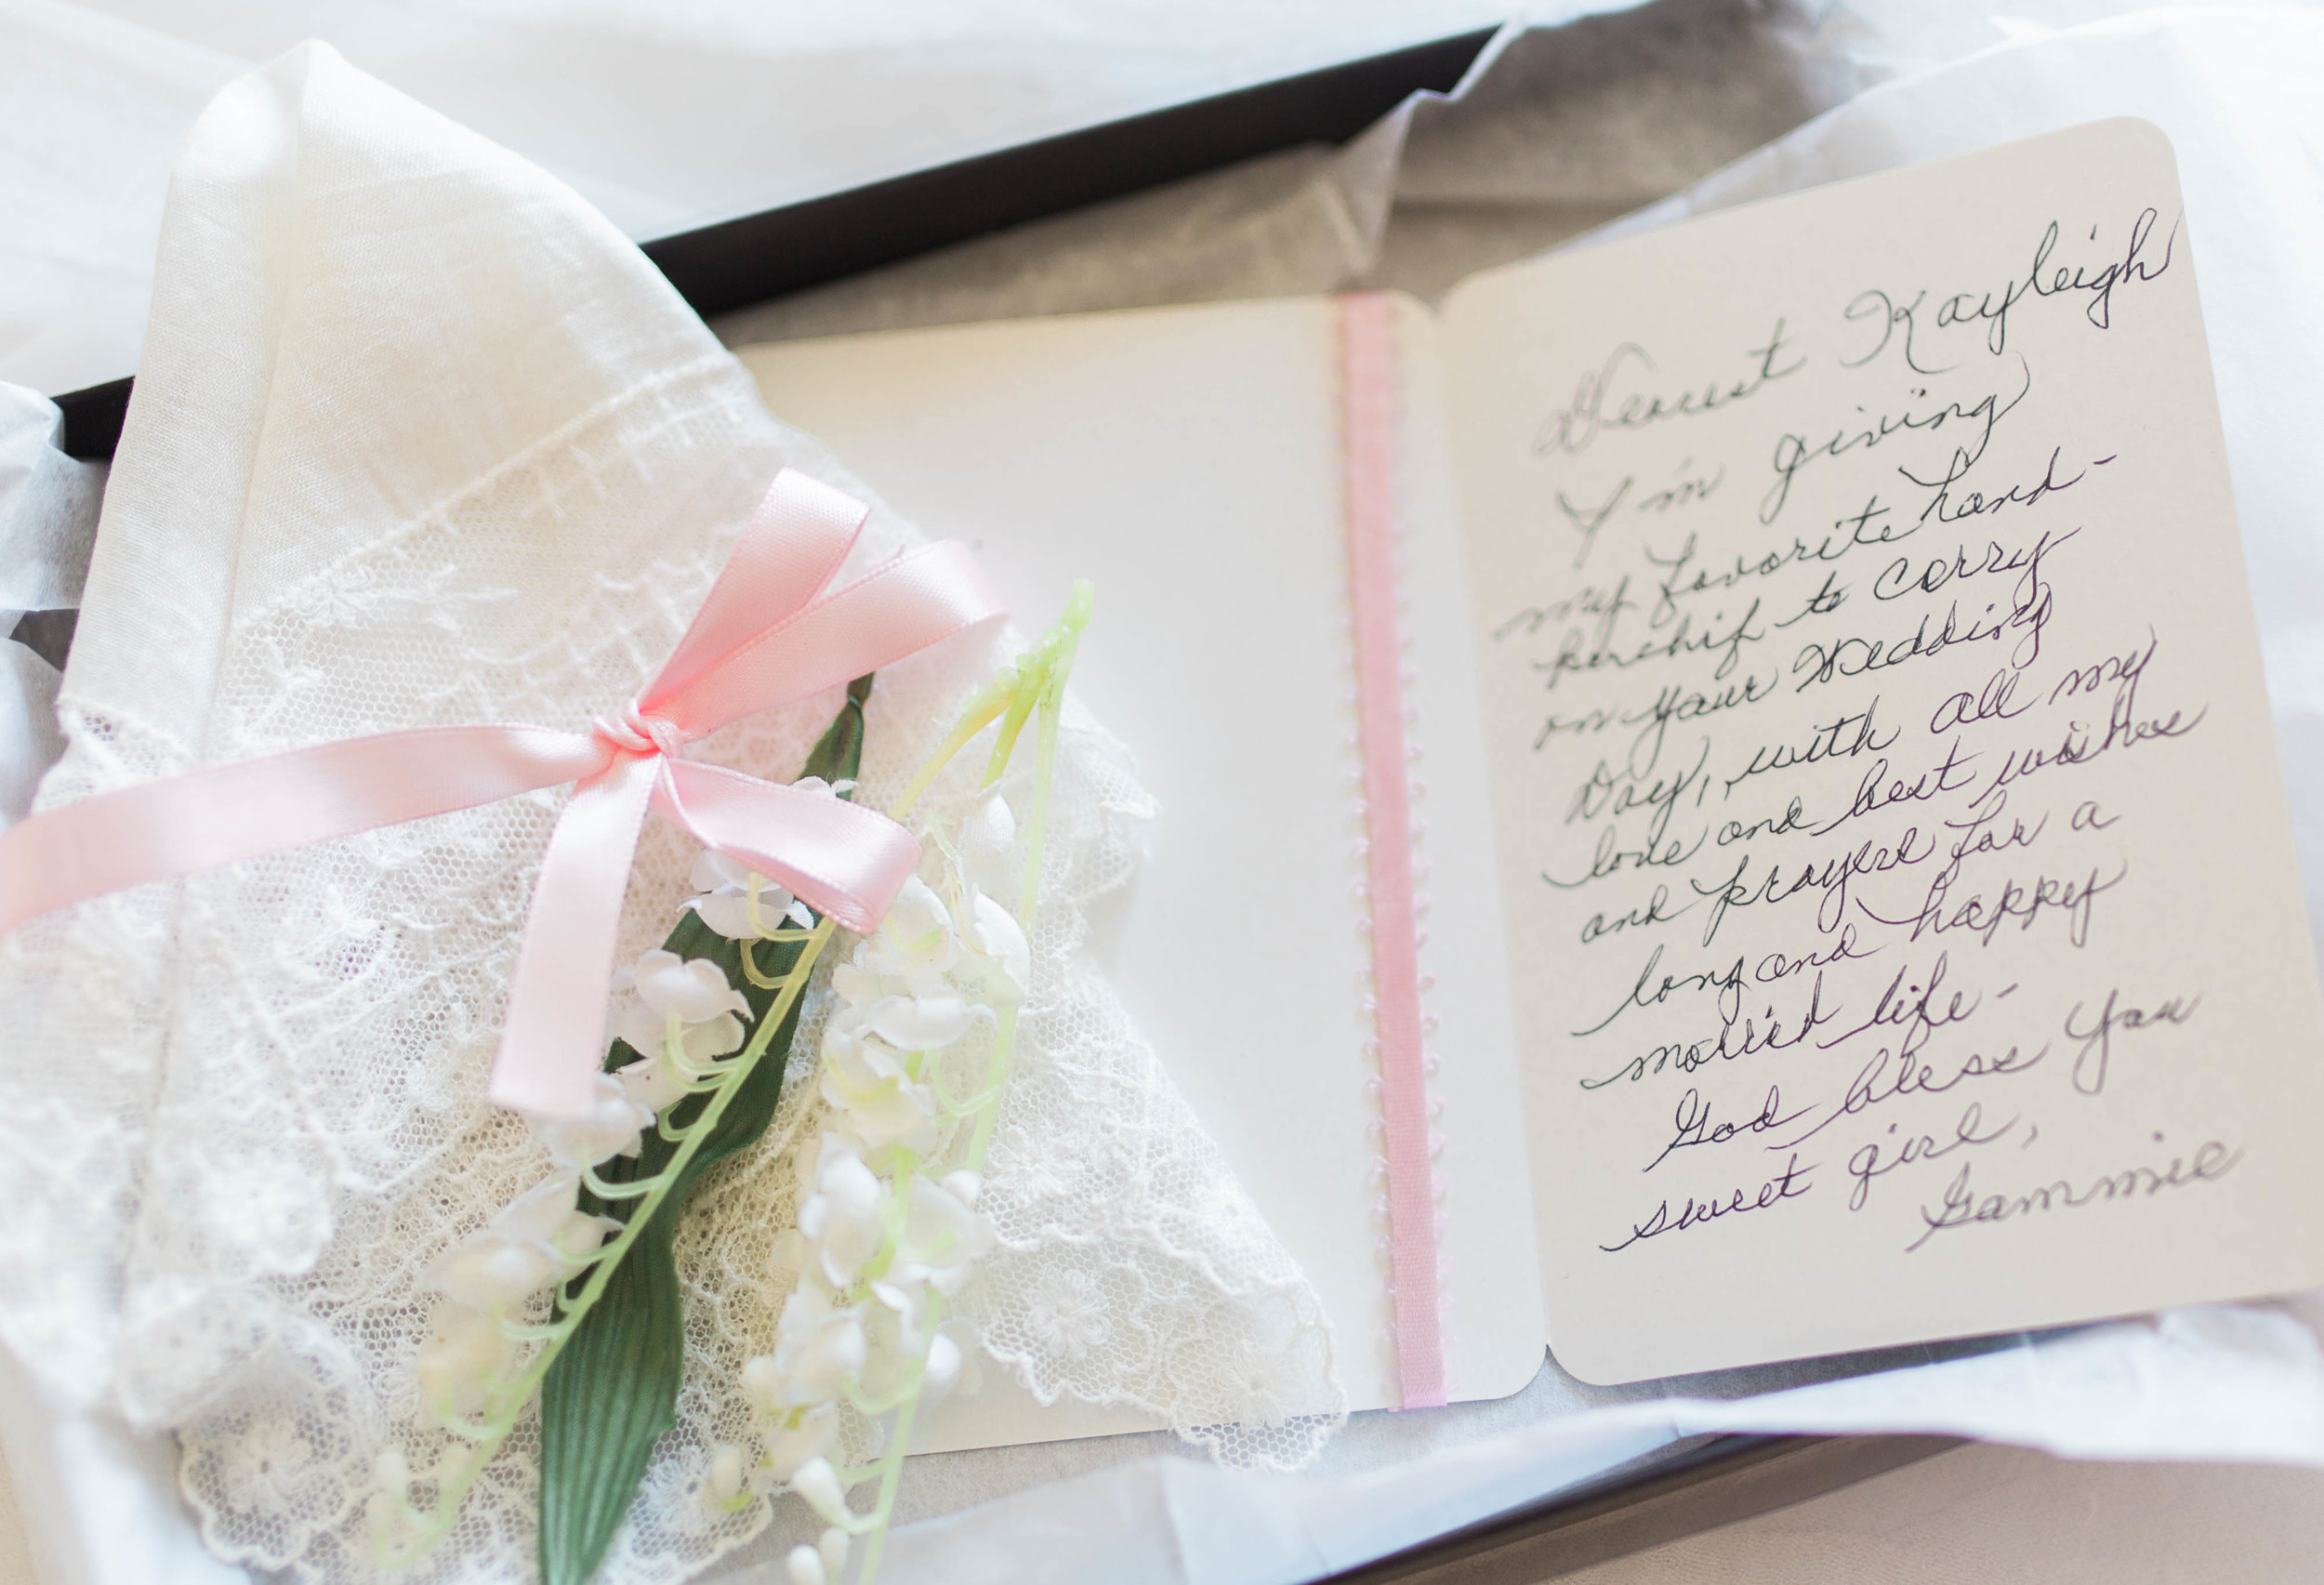 Dearest Kayleigh
I'm giving
my favorite hand-
kerchif to carry
on your Wedding
Day, with all my
love and best wishes
and prayers for a
long and happy
married life-
God bless you
sweet girl,
Gammie